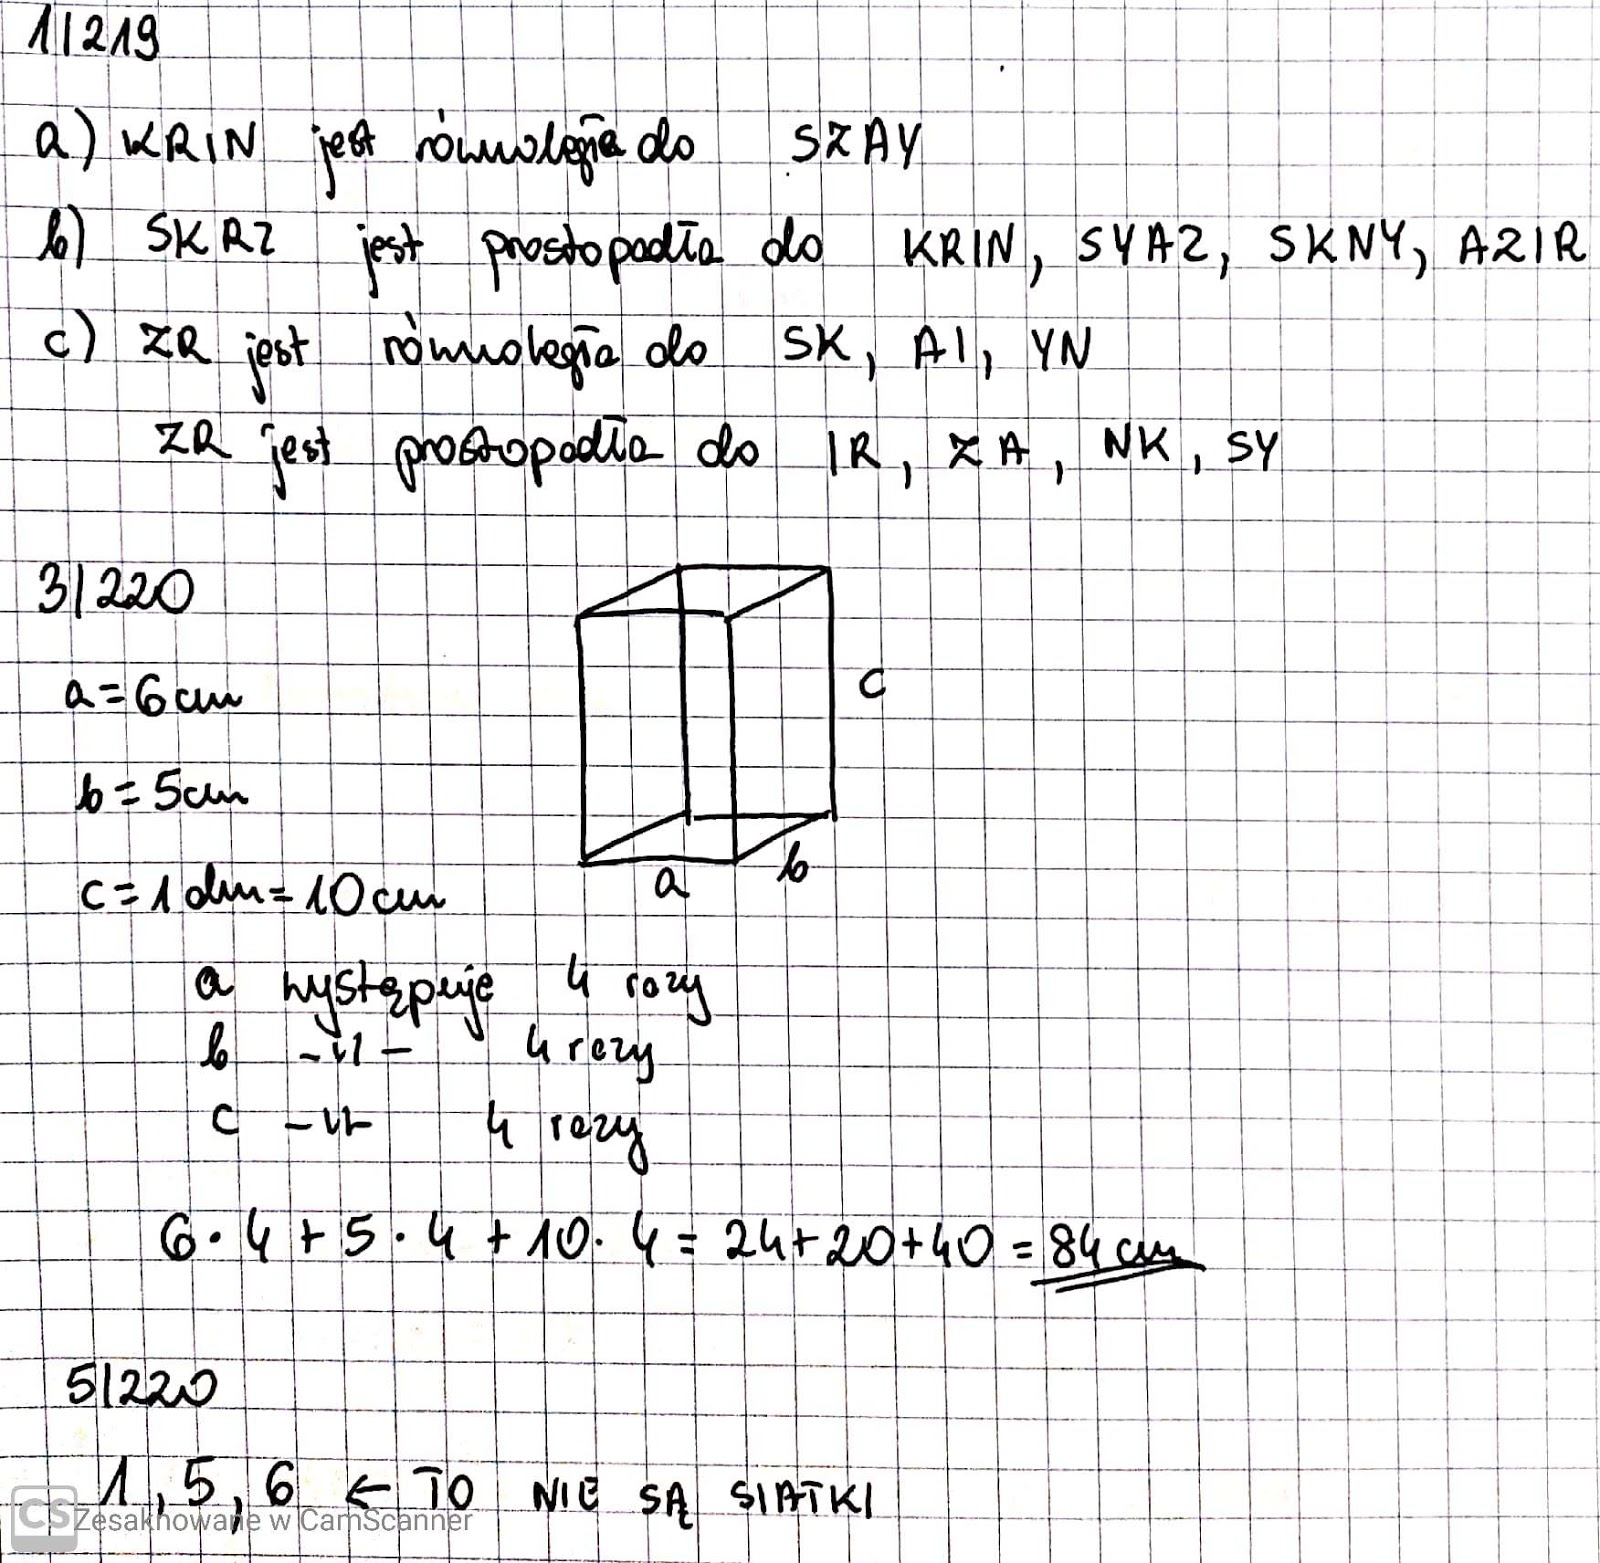 1/219
a) KRIN jest równoległa do SZAY
b) SKRZ jest prostopadła do KRIN, SYAZ, SKNY, AZIR
c) ZR jest równoległa do SK, AI, YN
ZR jest prostopadła do IR, ZA, NK, SY
3/220
a = 6 cm
c
b = 5 cm
a b
c = 1 dm = 10 cm
a występuje 4 razy
b -11- 4 razy
c -11- 4 razy
6 · 4 + 5 · 4 + 10 · 4 = 24 + 20 + 40 = 84 cm
5/220
1, 5, 6 ← TO NIE SĄ SIATKI
CS Zeskanowane w CamScanner